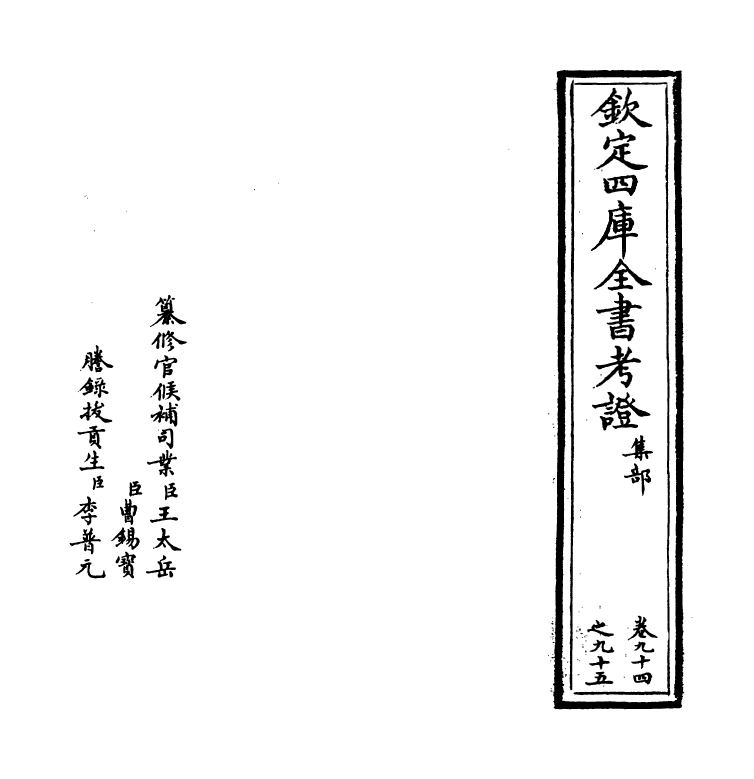 欽定四庫全書考證
集部
卷九十四
之九十五
纂修官候補司業臣王太岳
臣曹錫寶
謄錄拔貢生臣李普元